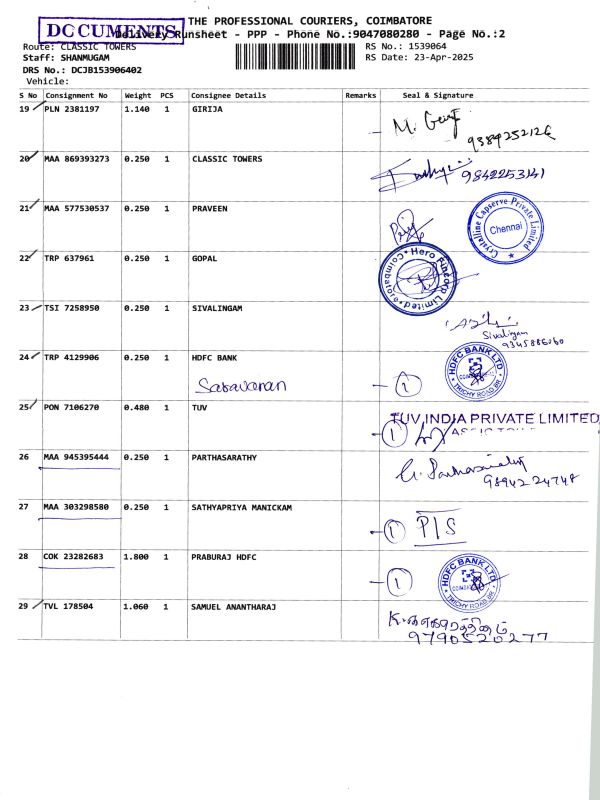 THE PROFESSIONAL COURIERS, COIMBATORE
DOCUMENTS
Delivery Runsheet - PPP - Phone No.:9047080280 - Page No.:2
Route: CLASSIC TOWERS
RS No.: 1539064
Staff: SHANMUGAM
RS Date: 23-Apr-2025
DRS No.: DCJB153906402
Vehicle:
S No Consignment No Weight PCS Consignee Details Remarks Seal & Signature
19 PLN 2381197 1.140 1 GIRIJA
9389252126
20 MAA 869393273 0.250 1 CLASSIC TOWERS
9842253141
21 MAA 577530537 0.250 1 PRAVEEN
Crystalline Capserve Private Limited
Chennai
22 TRP 637961 0.250 1 GOPAL
Hero Fincorp Limited
Coimbatore
23 TSI 7258950 0.250 1 SIVALINGAM
Sivalingam
24 TRP 4129906 0.250 1 HDFC BANK
Saravanan
1
HDFC BANK LTD
TRICHY ROAD BR
25 PON 7106270 0.480 1 TUV
TUV INDIA PRIVATE LIMITED
1
26 MAA 945395444 0.250 1 PARTHASARATHY
G. Parthasarathy
9894224748
27 MAA 303298580 0.250 1 SATHYAPRIYA MANICKAM
1 P/S
28 COK 23282683 1.800 1 PRABURAJ HDFC
1
HDFC BANK LTD
TRICHY ROAD BR
29 TVL 178504 1.060 1 SAMUEL ANANTHARAJ
9790520277